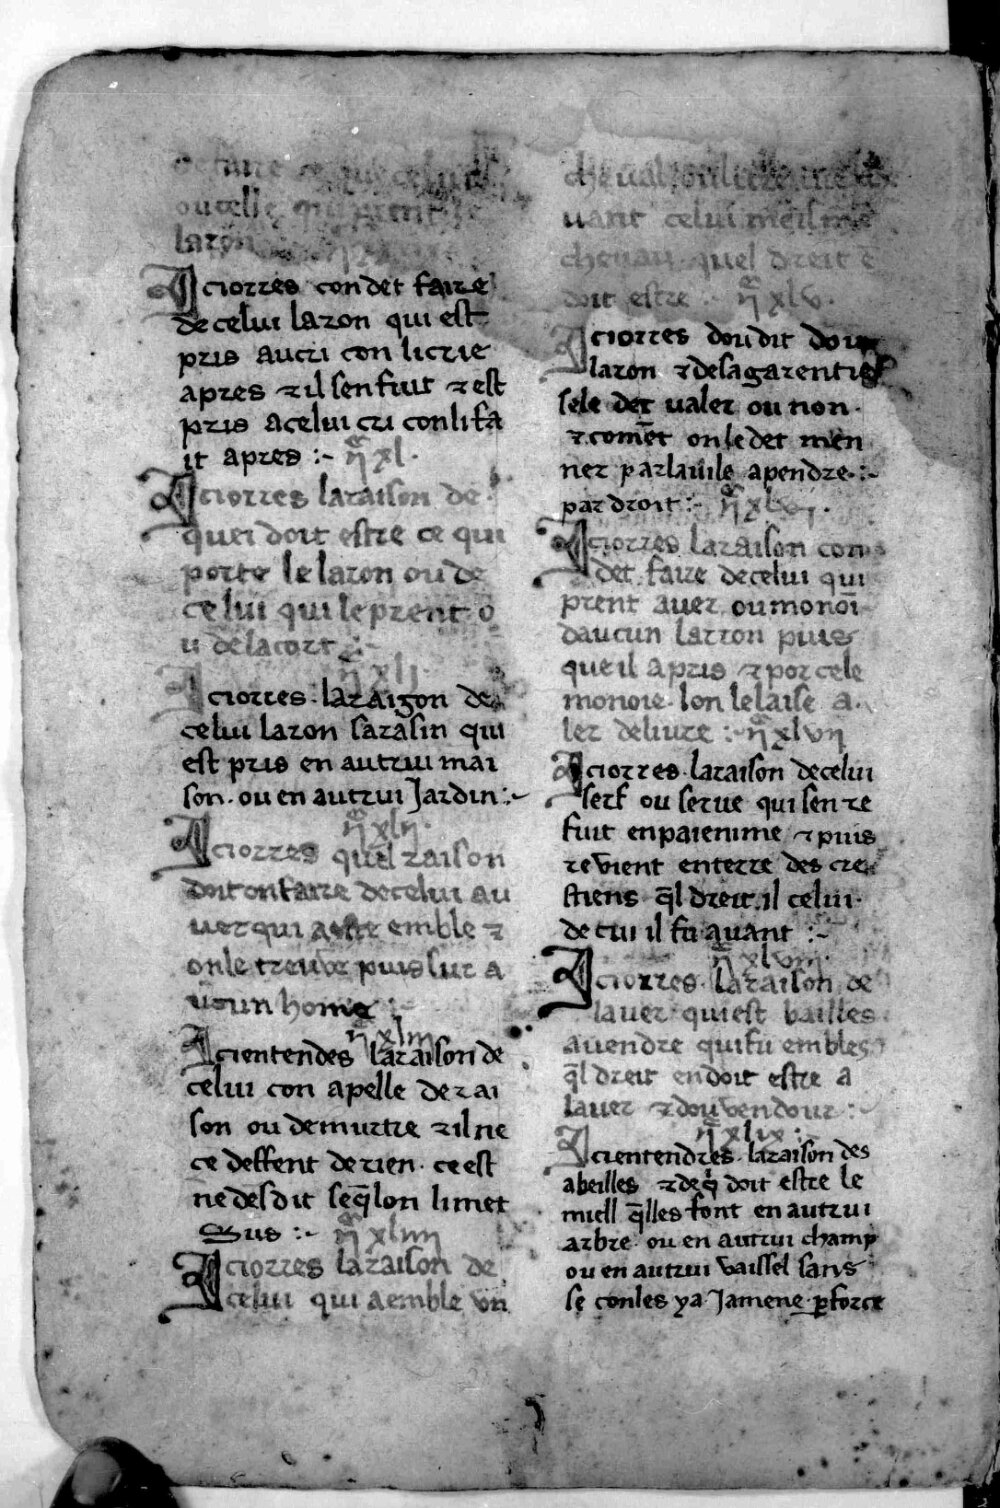 de faire
ou celle qui prent le
laron
Iciorres con det faire
de celui laron qui est
pris au cri con li crie
apres ⁊ il sen fuit ⁊ est
pris a celui cri con li fa
it apres :~ xl.
Iciorres la raison de
quei doit estre ce qui
porte le laron ou de
celui qui le prent o
u de la cort :~
xlj
Iciorres la raizon de
celui laron sarasin qui
est pris en autrui mai
son. ou en autrui jardin :~
xlij.
Iciorres quel raison
doit on faire de celui au
uer qui a este emble ⁊
on le treuve puis sur a
ucun home :~
xliij
Icientendes la raison de
celui con apelle de rai
son ou de murtre ⁊ il ne
ce deffent de rien. ce est
ne desdit se q̄lon li met
Sus :~ xliiij
Iciorres la raison de
celui qui a emble vn
cheual
uant celui meisme
cheuau quel dreit ē
doit estre :~ xlv.
Iciorres dou dit dou
laron ⁊ de sa garentie
se le det ualer ou non.
⁊ comēt on le det men
ner par la uile a pendre :~
par droit :~ xlvj.
Iciorres la raison con
det faire de celui qui
prent auer ou monoi
daucun larron puis
que il a pris ⁊ por cele
monoie. lon le laise a
ler deliure :~ xlvij
Iciorres. la raison de celui
serf ou serue qui sen re
fuit en paienime ⁊ puis
reuient en terre des cre
stiens q̄l dreit. il celui.
de cui il fu auant :~
xlviij.
Iciorres. la raison de
lauer qui est bailles
a uendre qui fu embles
q̄l dreit en doit estre a
lauer ⁊ dou uendour :~
xlix :
Icientendres. la raison des
abeilles ⁊ de q̄ doit estre le
miell q̄lles font en autrui
arbre. ou en autrui champ
ou en autrui vaissel sans
se con les ya jamene. ꝑ force